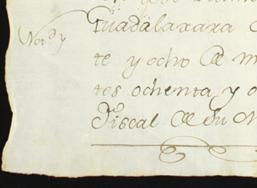 Guadalaxara
te y ocho de m
tos ochenta y o
Fiscal de su M